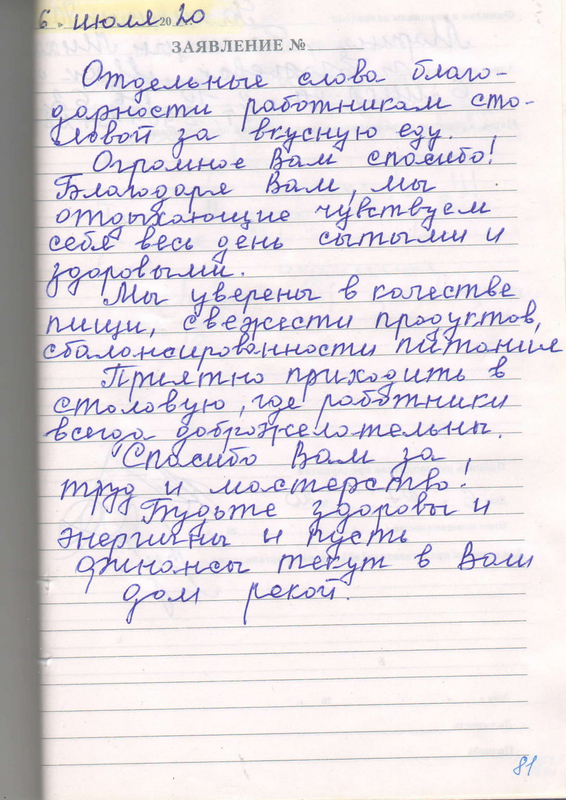 6. июля 2020
ЗАЯВЛЕНИЕ №
Отдельные слова благо-
дарности работникам сто-
ловой за вкусную еду.
Огромное Вам спасибо!
Благодаря Вам, мы
отдыхающие чувствуем
себя весь день сытыми и
здоровыми.
Мы уверены в качестве
пищи, свежести продуктов,
сбалансированности питания
Приятно приходить в
столовую, где работники
всегда доброжелательны.
Спасибо Вам за
труд и мастерство!
Будьте здоровы и
энергичны и пусть
финансы текут в Ваш
дом рекой.
81